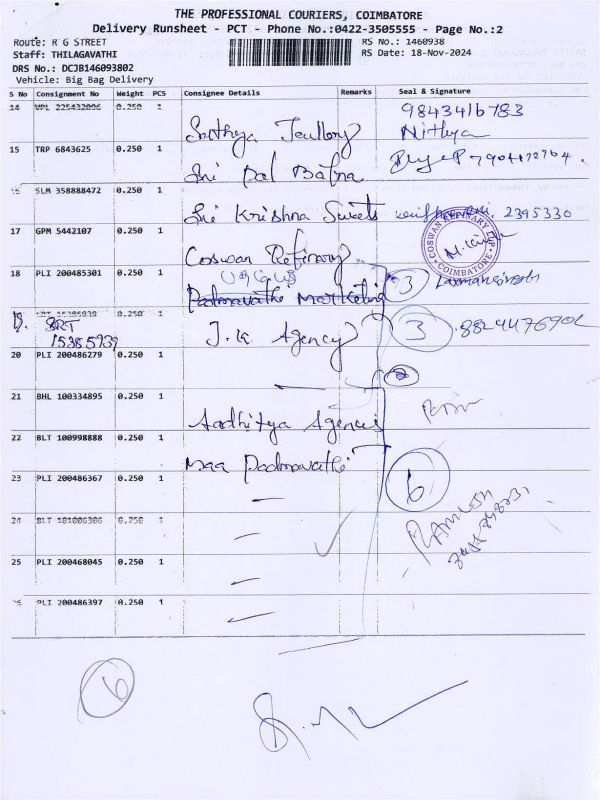 THE PROFESSIONAL COURIERS, COIMBATORE
Delivery Runsheet - PCT - Phone No.:0422-3505555 - Page No.:2
Route: R G STREET
RS No.: 1460938
Staff: THILAGAVATHI
RS Date: 18-Nov-2024
DRS No.: DCJB146093802
Vehicle: Big Bag Delivery
S No Consignment No Weight PCS Consignee Details Remarks Seal & Signature
14 0.250 9843416783
Nithya
15 TRP 6843625 0.250 1
Sri Bal Bafna
SLM 358888472 0.250 1
Sri Krishna Sweets 2395330
17 GPM 5442107 0.250 1
Coswan Refinery
COIMBATORE
18 PLI 200485301 0.250 1
Padmavathi Marketing 3
19. SRT 15385939
J.K Agency 3
20 PLI 200486279 0.250 1
21 BHL 100334895 0.250 1
Aadhitya Agencies
22 BLT 100998888 0.250 1
Maa Padmavathi
23 PLI 200486367 0.250 1
6
24 BLT 0.250 1
25 PLI 200468045 0.250 1
PLI 200486397 0.250 1
6